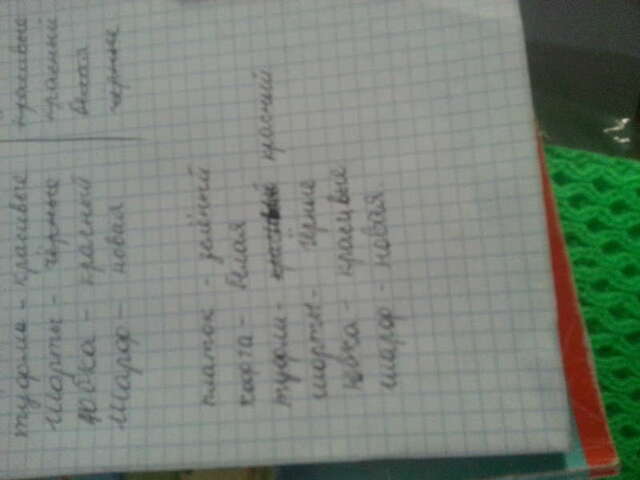 туфли - красивые
шорты - чёрные
юбка - красный
шарф - новая
красивые
красный
белая
черные
платок - зелёный
- белая
туфли - красный
шорты - чёрные
юбка - красивые
шарф - новая